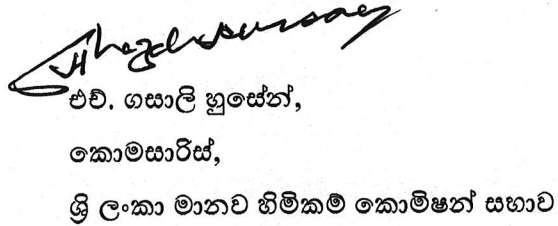 එච්. ගසාලි හුසේන්,
කොමසාරිස්,
ශ්‍රී ලංකා මානව හිමිකම් කොමිෂන් සභාව